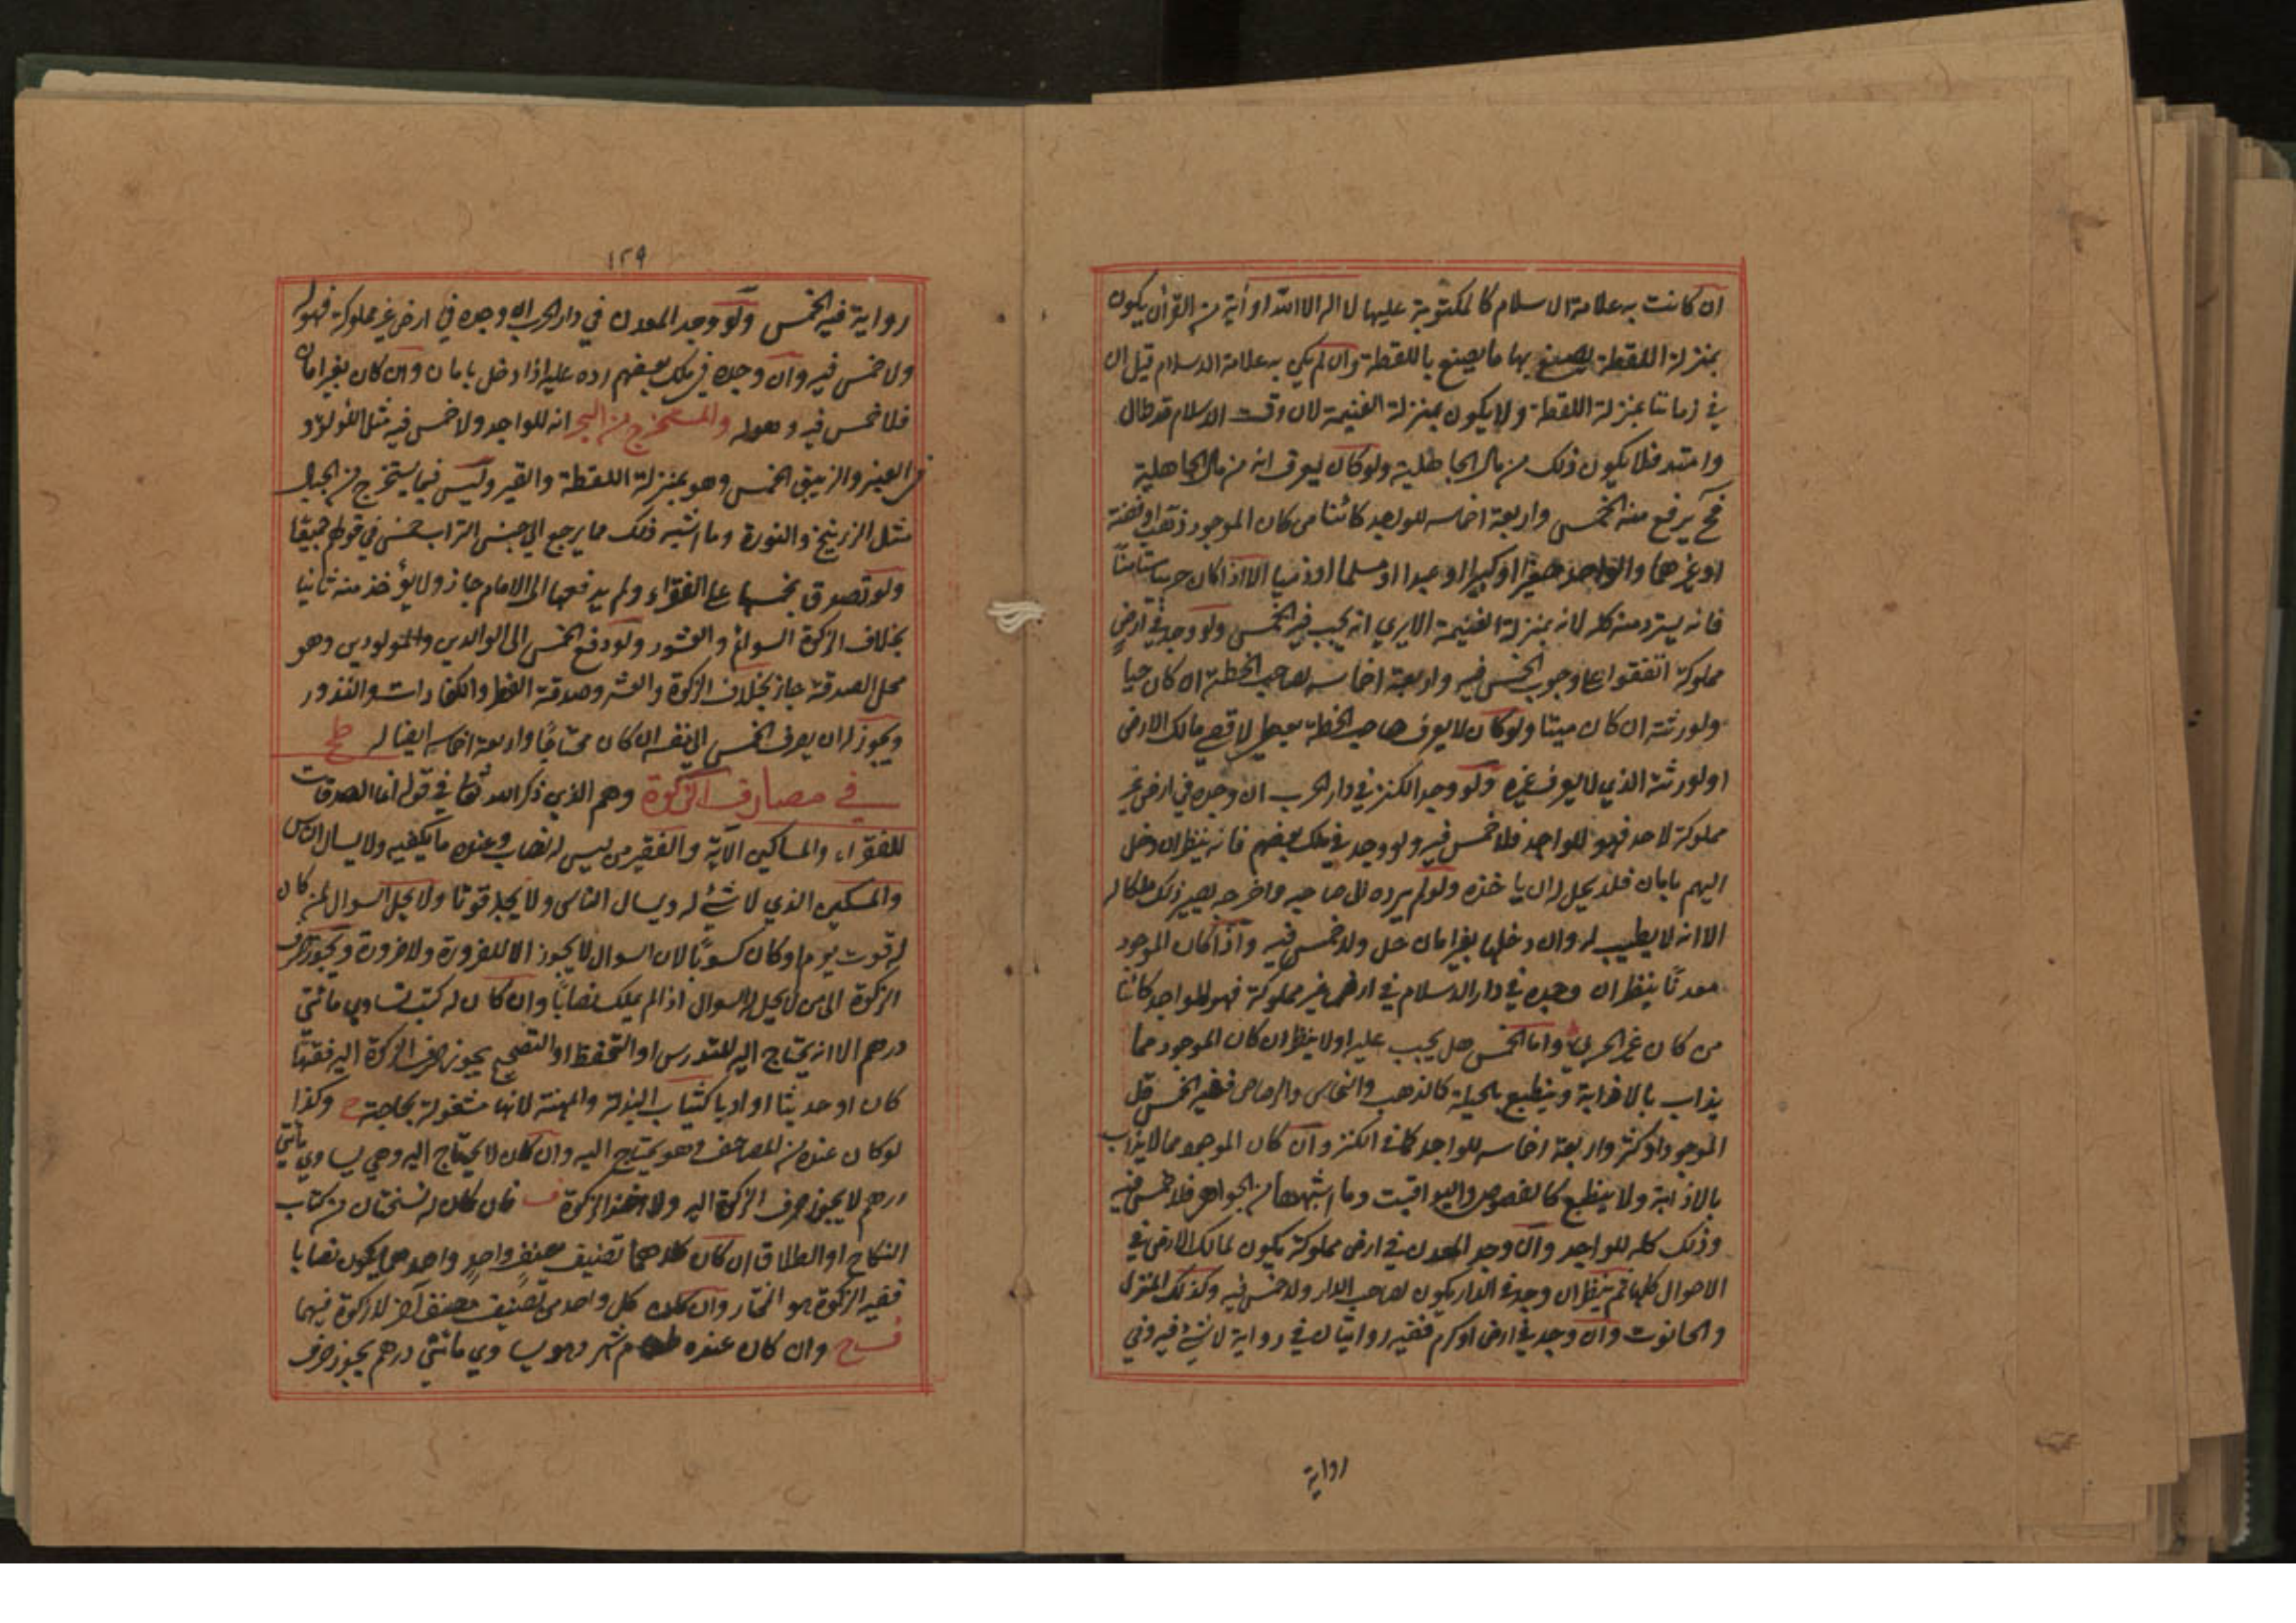 ان كانت به علامة الاسلام كالمكتوبة عليها لا اله الا الله او آية من القرآن يكون
بمنزلة اللقطة يصنع بها ما يصنع باللقطة وان لم يكن به علامة الاسلام قيل ان
في زماننا بمنزلة اللقطة ولا يكون بمنزلة الغنيمة لان وقت الاسلام قد طال
وامتد فلا يكون ذلك من مال الجاهلية ولو كان يعرف انه من مال الجاهلية
فح يرفع منه الخمس واربعة اخماسه للواجد كائنا من كان الموجود ذهبا او فضة
او غيرهما والواجد صغيرا او كبيرا او عبدا او مسلما او ذميا الا اذا كان حربيا مستامنا
فانه يسترد منه كله لانه بمنزلة الغنيمة الا يري انه يجب فيه الخمس ولو وجد في ارض
مملوكة اتفقوا على وجوب الخمس فيه واربعة اخماسه لصاحب الخطة ان كان حيا
ولورثته ان كان ميتا ولو كان لا يعرف صاحب الخطة يعطي لاقصي مالك الارض
او لورثته الذي لا يعرف غيره ولو وجد الكنز في دار الحرب ان وجده في ارض غير
مملوكة لاحد فهو للواجد فلا خمس فيه ولو وجد في ملك بعضهم فانه ينظر ان دخل
اليهم بامان فلا يحل له ان ياخذه ولو لم يرده الى صاحبه واخرجه يصير ذلك ملكا له
الا انه لا يطيب له وان دخلها بغير امان حل ولا خمس فيه واذا كان الموجود
معدنا ينظر ان وجده في دار الاسلام في ارض غير مملوكة فهو للواجد كائنا
من كان غير الحربي واما الخمس هل يجب عليه او لا ينظر ان كان الموجود مما
يذاب بالاذابة وينطبع بالحيلة كالذهب والنحاس والرصاص ففيه الخمس قل
الموجود او كثر واربعة اخماسه للواجد كما في الكنز وان كان الموجود مما لا يذاب
بالاذابة ولا ينطبع كالفصوص واليواقيت وما اشبهها من الجواهر فلا خمس فيه
وذلك كله للواجد وان وجد المعدن في ارض مملوكة يكون لمالك الارض في
الاحوال كلها ثم ينظر ان وجد في الدار يكون لصاحب الدار ولا خمس فيه وكذلك المنزل
والحانوت وان وجد في ارض او كرم ففيه روايتان في رواية لا شئ فيه وفي
رواية
١٢٩
رواية فيه الخمس ولو وجد المعدن في دار الحرب ان وجده في ارض غير مملوكة فهو له
ولا خمس فيه وان وجده في ملك بعضهم رده عليه اذا دخل بامان وان كان بغير امان
فلا خمس فيه وهو له والمستخرج من البحر انه للواجد ولا خمس فيه مثل اللؤلؤ و
العنبر والزيبق الخمس وهو بمنزلة اللقطة والقير وليس فيما يستخرج من الجبال
مثل الزرنيخ والنورة وما اشبه ذلك مما يرجع الي جنس التراب خمس في قولهم جميعا
ولو تصدق بخمسها على الفقراء ولم يدفعها الى الامام جاز ولا يؤخذ منه ثانيا
بخلاف الزكوة السوائم والعشور ولو دفع الخمس الى الوالدين والمولودين وهو
محل الصدقة جاز بخلاف الزكوة والعشر وصدقة الفطر والكفارات والنذور
ويجوز له ان يصرف الخمس الي نفسه ان كان محتاجا واربعة اخماسه ايضا له
في مصارف الزكوة وهم الذي ذكر الله تعا في قوله انما الصدقات
للفقراء والمساكين الآية والفقير من ليس له نصاب وعنده ما يكفيه ولا يسال الناس
والمسكين الذي لا شئ له ويسال الناس ولا يجد قوتا ولا يحل السوال لمن كان
له قوت يوم او كان كسوبا لان السوال لا يجوز الا للضرورة ولا ضرورة ويجوز صرف
الزكوة الى من لا يحل له السوال اذا لم يملك نصابا وان كان له كتب تساوي مائتي
درهم الا انه يحتاج اليه للتدرس او التحفظ او التصحيح يجوز صرف الزكوة اليه فقها
كان او حديثا او ادبا كثياب البذلة والمهنة لانها مشغولة بحاجته ح وكذا
لو كان عنده من المصاحف وهو يحتاج اليه وان كان لا يحتاج اليه وهي يساوي مأتي
درهم لا يجوز صرف الزكوة اليه ولا اخذ الزكوة ف فان كان له نسختان من كتاب
النكاح او الطلاق ان كان كلاهما تصنيف مصنف واحد واحدهما يكون نصابا
ففيه الزكوة هو المختار وان كان كل واحد من تصنيف مصنف آخر لا زكوة فيهما
وان كان عنده طعام شهر وهو يساوي مائتي درهم يجوز صرف